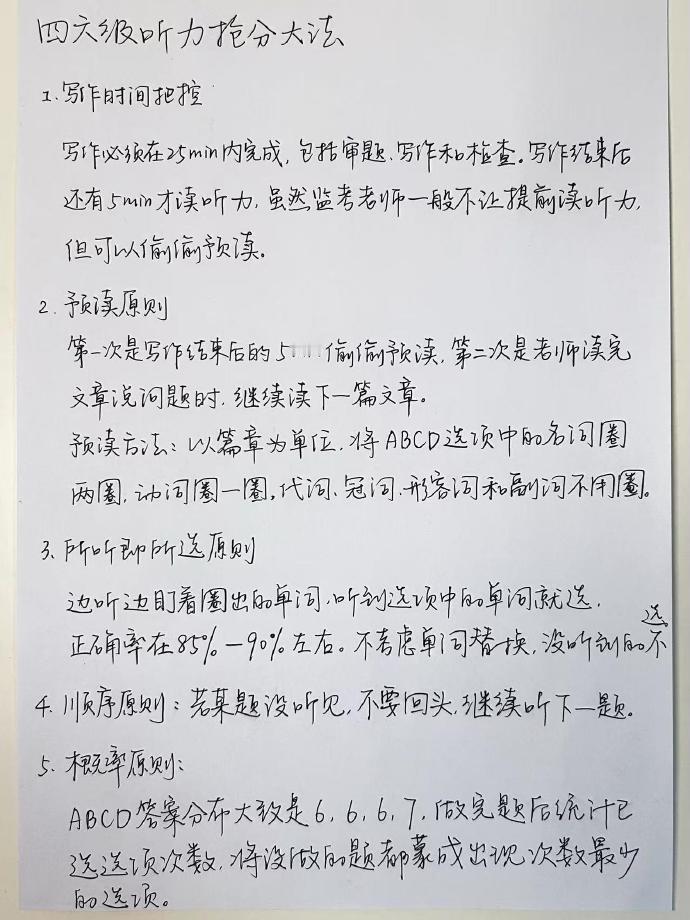 四六级听力抢分大法
1. 写作时间把控
写作必须在25min内完成，包括审题、写作和检查。写作结束后
还有5min才读听力，虽然监考老师一般不让提前读听力，
但可以偷偷预读。
2. 预读原则
第一次是写作结束后的5 偷偷预读，第二次是老师读完
文章说问题时，继续读下一篇文章。
预读方法：以篇章为单位，将ABCD选项中的名词圈
两圈，动词圈一圈，代词、冠词、形容词和副词不用圈。
3. 所听即所选原则
边听边盯着圈出的单词，听到选项中的单词就选，
正确率在85%-90%左右。不考虑单词替换，没听到的不选
4. 顺序原则：若某题没听见，不要回头，继续听下一题。
5. 概率原则：
ABCD答案分布大致是6，6，6，7，做完题后统计已
选选项次数，将没做的题都蒙成出现次数最少
的选项。